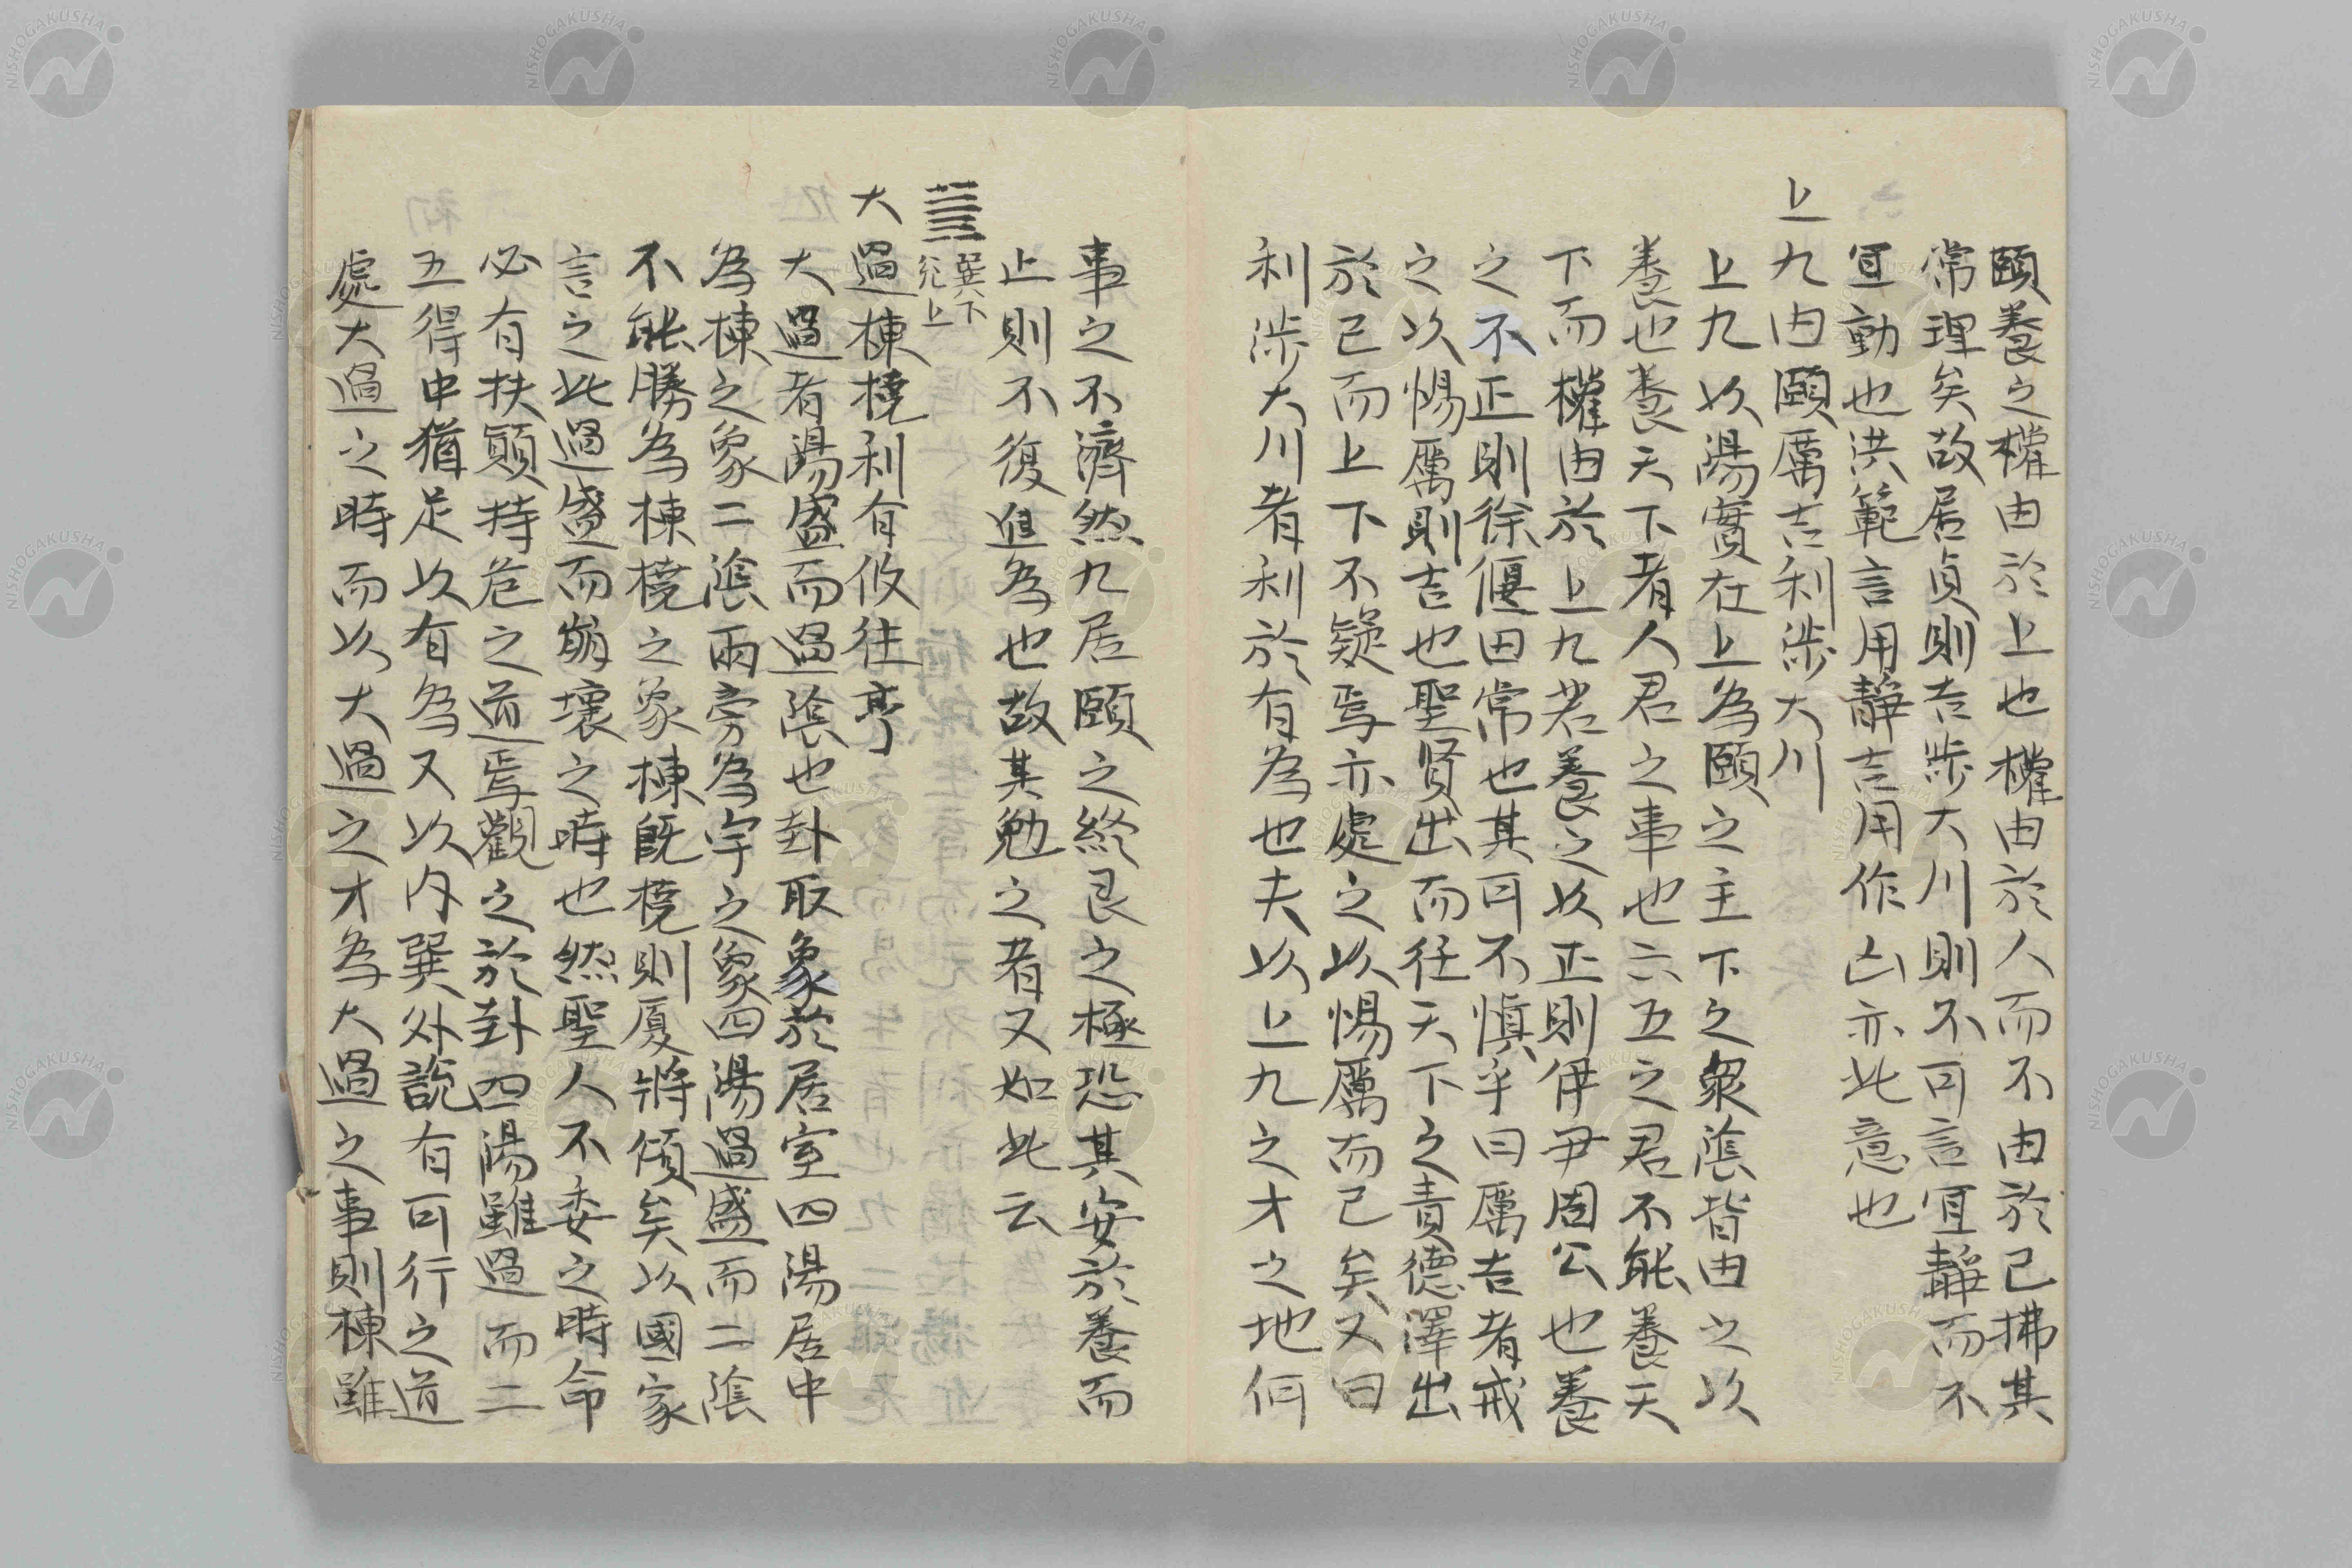 頤養之權由於上也權由於人而不由於己拂其
常理矣故居貞則吉涉大川則不可言宜靜而不
宜動也洪範言用靜吉用作凶亦此意也
上九由頤厲吉利涉大川
上九以陽實在上為頤之主下之衆陰皆由之以
養也養天下者人君之事也六五之君不能養天
下而權由於上九若養之以正則伊尹周公也養
之不正則徐偃田常也其可不愼乎曰厲吉者戒
之以惕厲則吉也聖賢出而任天下之責德澤出
於己而上下不疑焉亦處之以惕厲而已矣又曰
利涉大川者利於有為也夫以上九之才之地何
事之不濟然九居頤之終艮之極恐其安於養而
止則不復進為也故其勉之者又如此云
巽下
兌上
大過棟橈利有攸往亨
大過者陽盛而過陰也卦取象於居室四陽居中
為棟之象二陰兩旁為宇之象四陽過盛而二陰
不能勝為棟橈之象棟既橈則厦將傾矣以國家
言之此過盛而崩壞之時也然聖人不委之時命
必有扶顚持危之道焉觀之於卦四陽雖過而二
五得中猶足以有為又以内巽外說有可行之道
處大過之時而以大過之才為大過之事則棟雖
NISHOGAKUSHA